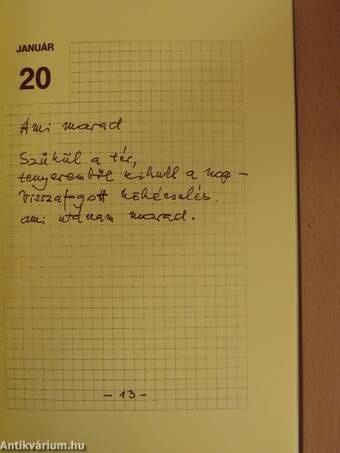 JANUÁR
20
Ami marad
Szűkül a tér,
tenyeremből kihull a nap –
visszafogott köhécselés,
ami utánam marad.
– 13 –
Antikvárium.hu